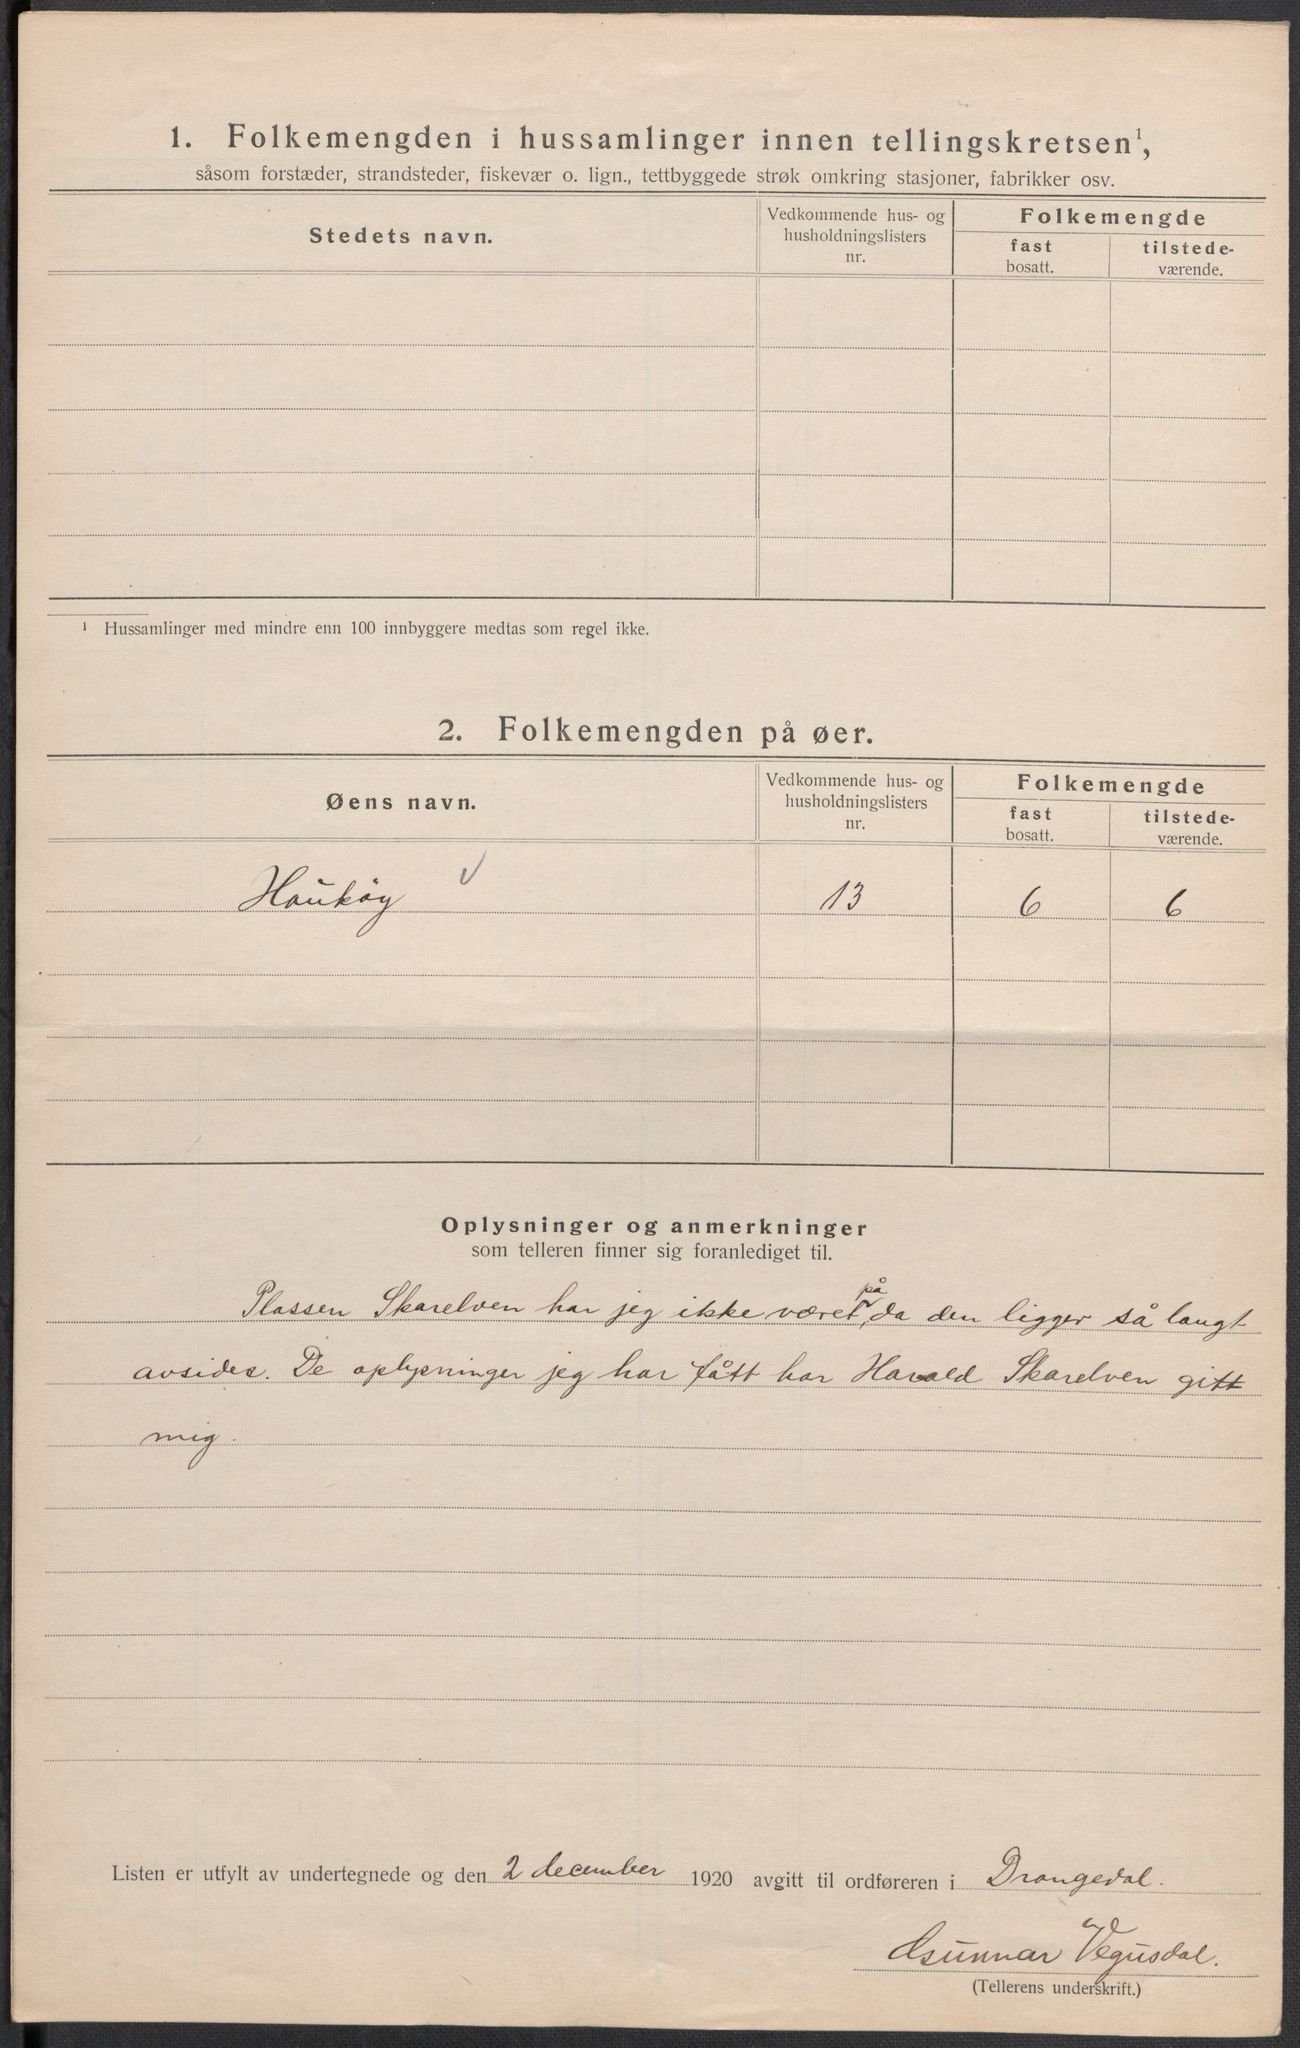 1. Folkemengden i hussamlinger innen tellingskretsen¹,
såsom forstæder, strandsteder, fiskevær o. lign., tettbyggede strøk omkring stasjoner, fabrikker osv.
Stedets navn.
Vedkommende hus- og
husholdningslisters
nr.
Folkemengde
fast
bosatt.
tilstede-
værende.
¹ Hussamlinger med mindre enn 100 innbyggere medtas som regel ikke.
2. Folkemengden på øer.
Øens navn.
Vedkommende hus- og
husholdningslisters
nr.
Folkemengde
fast
bosatt.
tilstede-
værende.
Haukøy 13 6 6
Oplysninger og anmerkninger
som telleren finner sig foranlediget til.
Plassen Skarelven har jeg ikke været på, da den ligger så langt
avsides. De oplysninger jeg har fått har Harald Skarelven gitt
mig.
Listen er utfylt av undertegnede og den 2 december 1920 avgitt til ordføreren i Drangedal.
Gunnar Vegusdal.
(Tellerens underskrift.)